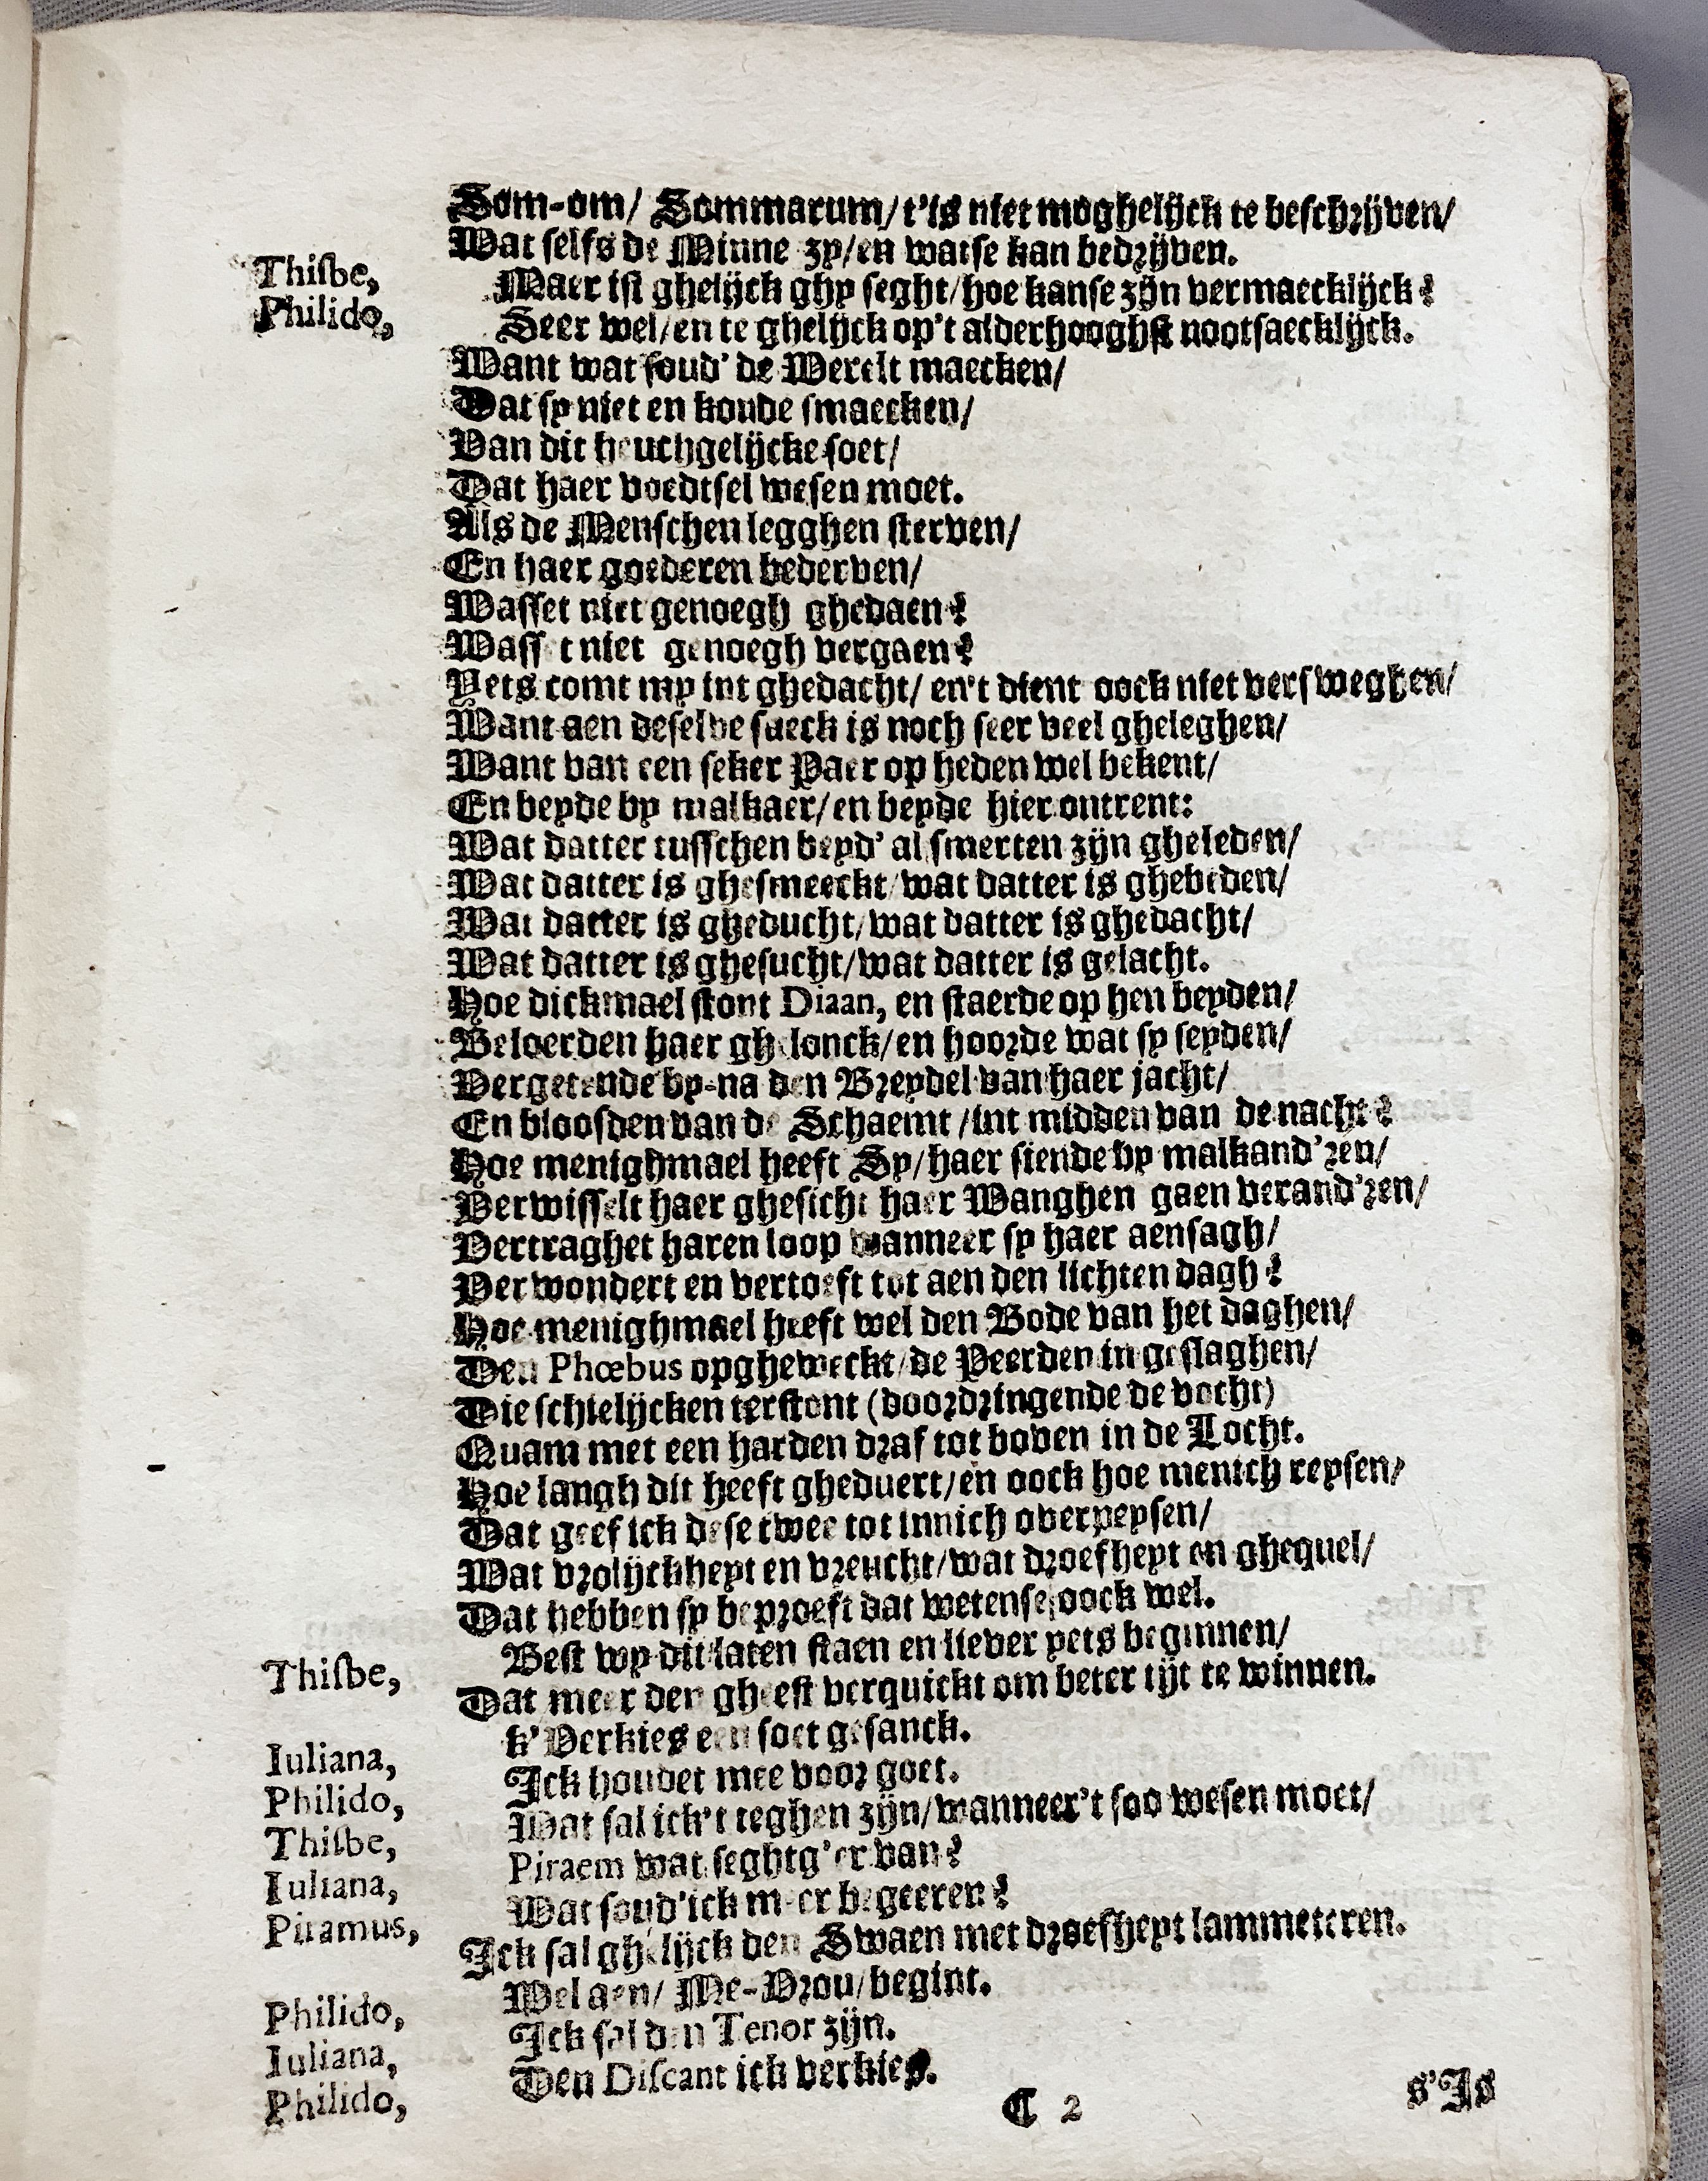 Som-om/ Sommarum/ t'is niet moghelijck te beschrijven/
Wat selfs de Minne zy/ en watse kan bedrijven.
Thisbe, Maer ist ghelijck ghy seght/ hoe kanse zijn vermaecklijck?
Philido, Seer wel/ en te ghelijck op't alderhooghst nootsaecklijck.
Want wat soud' de Werelt maecken/
Dat sy niet en konde smaecken/
Van dit heuchgelijcke soet/
Dat haer voedtsel wesen moet.
Als de Menschen legghen sterven/
En haer goederen bederven/
Wasset niet genoegh ghedaen?
Wasset niet genoegh vergaen?
Yets comt my int ghedacht/ en't dient oock niet versweghen/
Want aen deselve saeck is noch seer veel gheleghen/
Want van een seker Paer op heden wel bekent/
En beyde by malkaer/ en beyde hier ontrent:
Wat datter tusschen beyd' al smerten zijn gheleden/
Wat datter is ghesmeeckt/ wat datter is ghebeden/
Wat datter is gheducht/ wat datter is ghedacht/
Wat datter is ghesucht/ wat datter is gelacht.
Hoe dickmael stont Diaan, en staerde op hen beyden/
Beloerden haer ghelonck/ en hoorde wat sy seyden/
Vergetende by-na den Breydel van haer jacht/
En bloosden van de Schaemt/ int midden van de nacht?
Hoe menighmael heeft Sy/ haer siende by malkand'ren/
Verwisselt haer ghesicht haer Wanghen gaen verand'ren/
Vertraghet haren loop wanneer sy haer aensagh/
Verwondert en vertoeft tot aen den lichten dagh?
Hoe menighmael heeft wel den Bode van het daghen/
Den Phœbus opgheweckt/ de Peerden in geslaghen/
Die schielijcken terstont (doordringende de vocht)
Quam met een harden draf tot boven in de Locht.
Hoe langh dit heeft gheduert/ en oock hoe menich reysen/
Dat geef ick dese twee tot innich overpeysen/
Wat vrolijckheyt en vreucht/ wat droefheyt en ghequel/
Dat hebben sy beproeft dat wetense oock wel.
Thisbe, Best wy dit laten staen en liever yets beginnen/
Dat meer den gheest verquickt om beter tijt te winnen.
Iuliana, k'Verkies een soet gesanck.
Philido, Ick houdet mee voor goet.
Thisbe, Wat sal ick't teghen zijn/ wanneer't soo wesen moet/
Iuliana, Piraem wat seghtg'er van?
Piramus, Wat soud' ick meer begeeren?
Ick sal ghelijck den Swaen met droefheyt lammeteren.
Philido, Wel aen/ Me-Vrou/ begint.
Iuliana, Ick sal den Tenor zijn.
Philido, Den Discant ick verkies.
C 2 s'Is